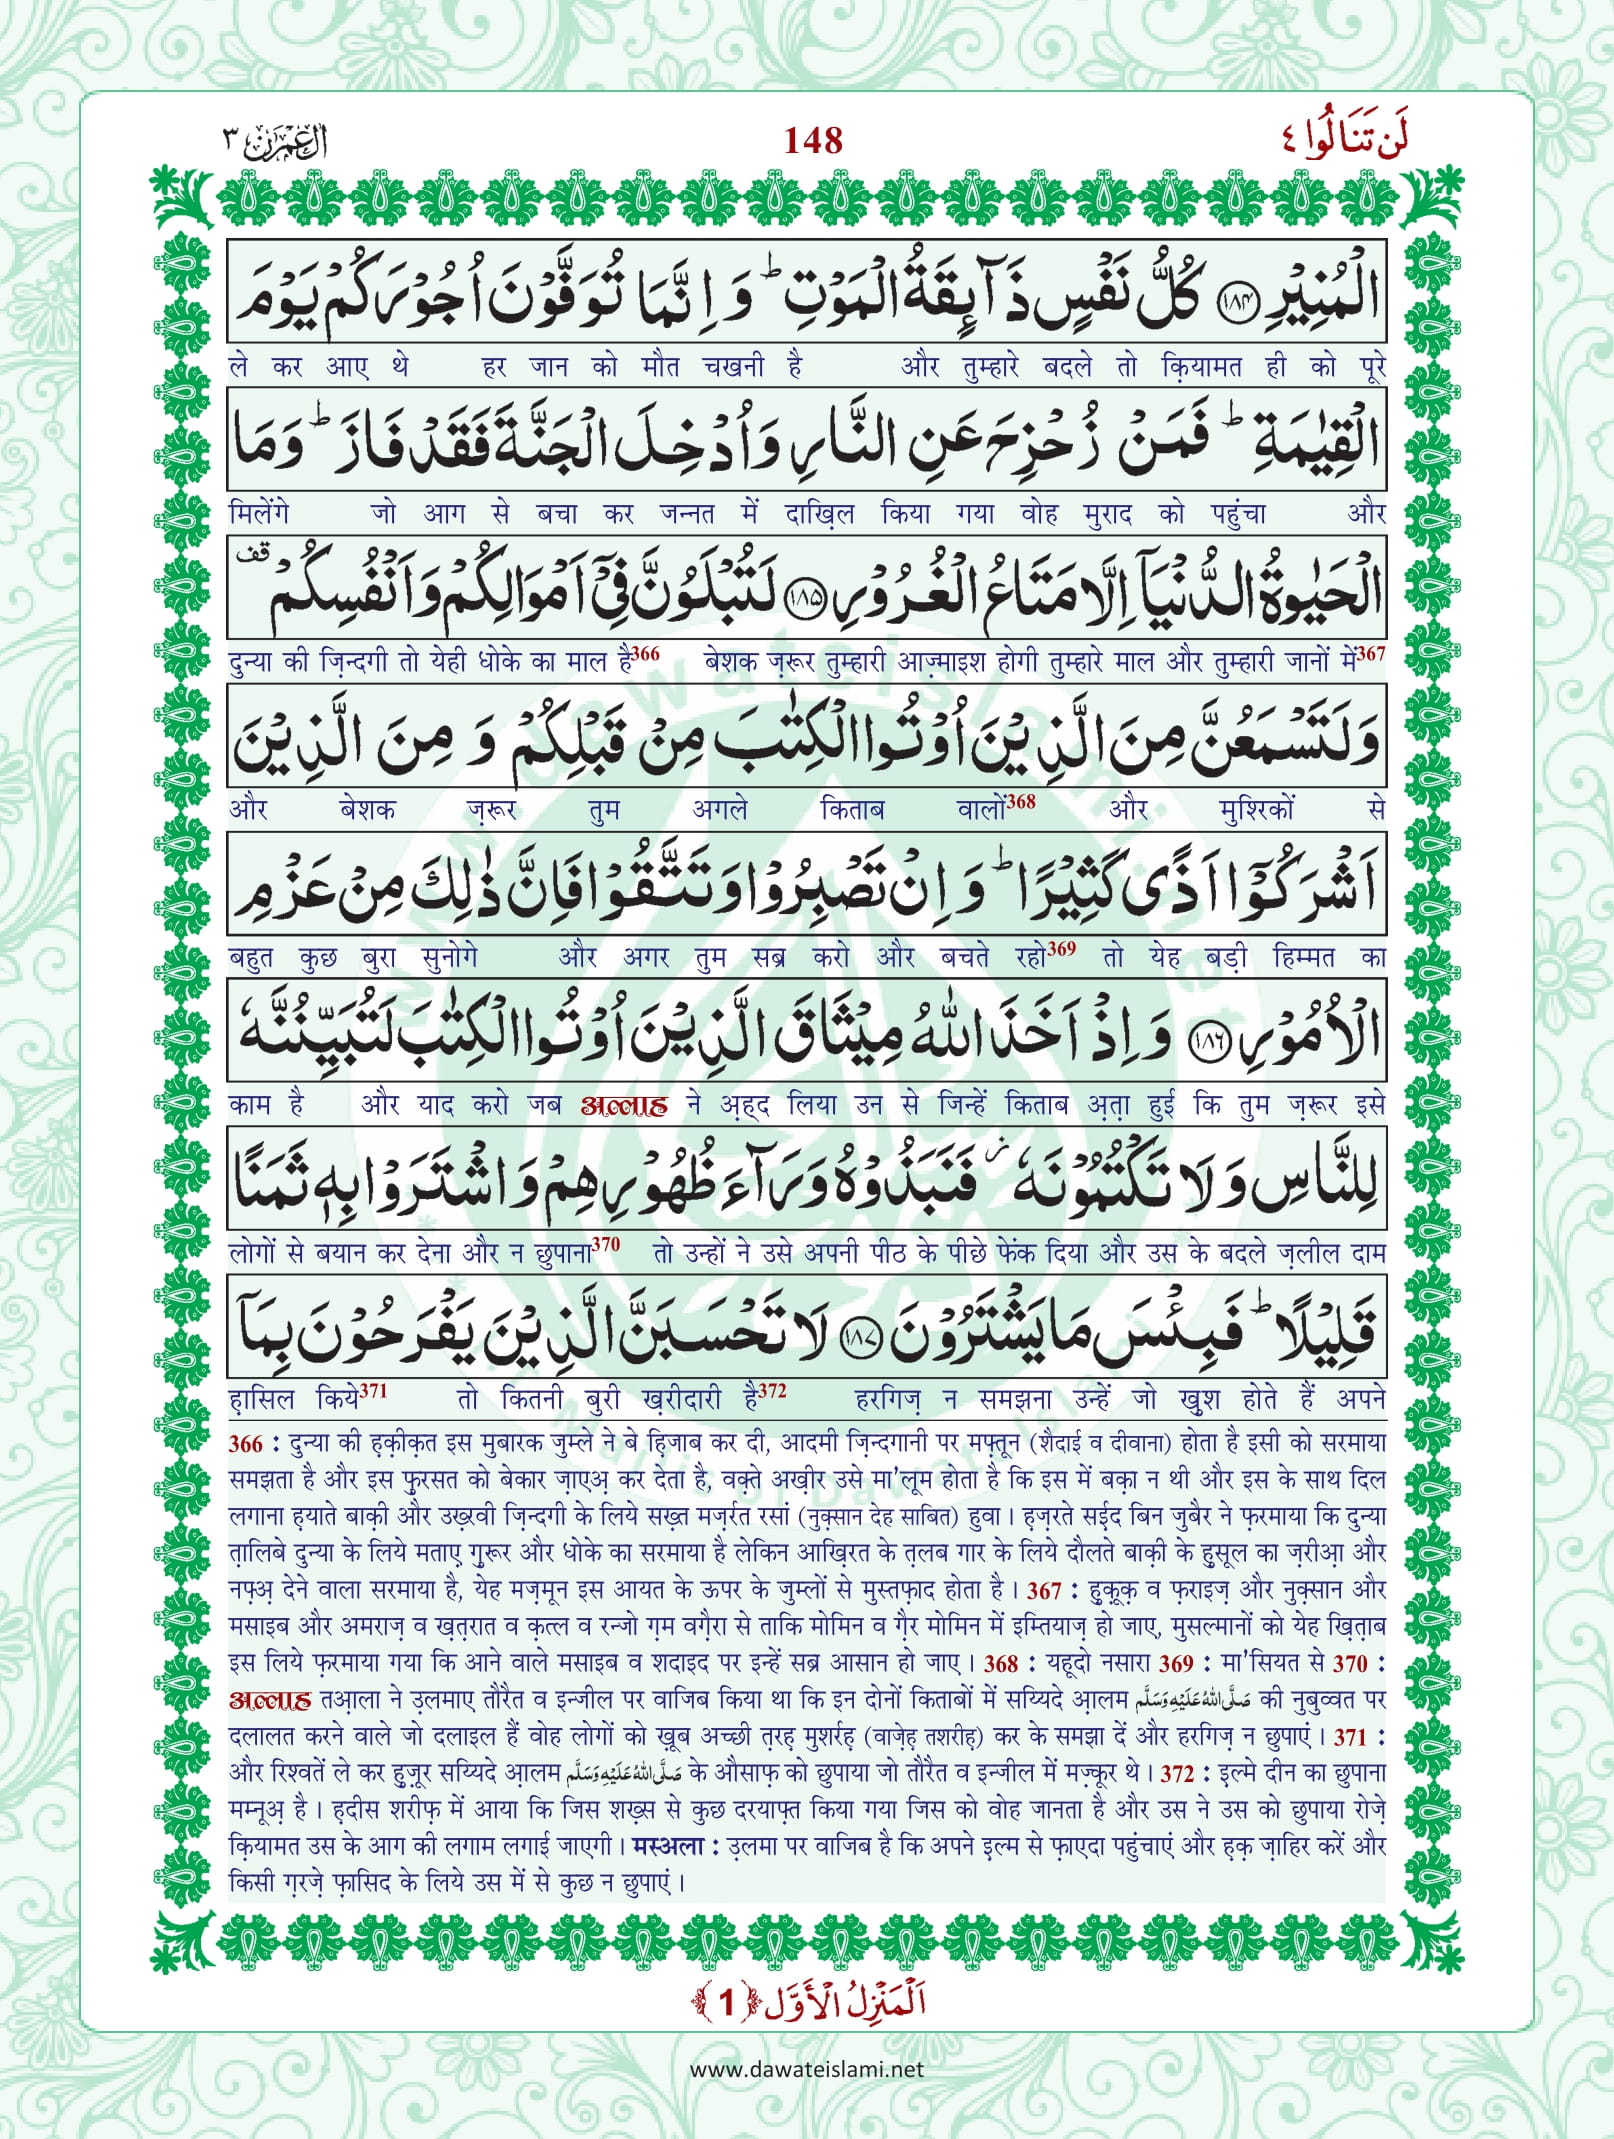 اٰل عمرٰن ٣
148
لَنْ تَنَالُوا ٤
الْمُنِیْرِ ﴿۱۸۴﴾ كُلُّ نَفْسٍ ذَآىِٕقَةُ الْمَوْتِ ؕ وَ اِنَّمَا تُوَفَّوْنَ اُجُوْرَكُمْ یَوْمَ
ले कर आए थे हर जान को मौत चखनी है और तुम्हारे बदले तो क़ियामत ही को पूरे
الْقِیٰمَةِ ؕ فَمَنْ زُحْزِحَ عَنِ النَّارِ وَ اُدْخِلَ الْجَنَّةَ فَقَدْ فَازَ ؕ وَ مَا
मिलेंगे जो आग से बचा कर जन्नत में दाख़िल किया गया वोह मुराद को पहुंचा और
الْحَیٰوةُ الدُّنْیَاۤ اِلَّا مَتَاعُ الْغُرُوْرِ ﴿۱۸۵﴾ لَتُبْلَوُنَّ فِیْۤ اَمْوَالِكُمْ وَ اَنْفُسِكُمْ قف
दुन्या की ज़िन्दगी तो येही धोके का माल है366 बेशक ज़रूर तुम्हारी आज़्माइश होगी तुम्हारे माल और तुम्हारी जानों में367
وَ لَتَسْمَعُنَّ مِنَ الَّذِیْنَ اُوْتُوا الْكِتٰبَ مِنْ قَبْلِكُمْ وَ مِنَ الَّذِیْنَ
और बेशक ज़रूर तुम अगले किताब वालों368 और मुश्रिकों से
اَشْرَكُوْۤا اَذًى كَثِیْرًا ؕ وَ اِنْ تَصْبِرُوْا وَ تَتَّقُوْا فَاِنَّ ذٰلِكَ مِنْ عَزْمِ
बहुत कुछ बुरा सुनोगे और अगर तुम सब्र करो और बचते रहो369 तो येह बड़ी हिम्मत का
الْاُمُوْرِ ﴿۱۸۶﴾ وَ اِذْ اَخَذَ اللّٰهُ مِیْثَاقَ الَّذِیْنَ اُوْتُوا الْكِتٰبَ لَتُبَیِّنُنَّهٗ
काम है और याद करो जब अल्लाह ने अ़ह्द लिया उन से जिन्हें किताब अ़त़ा हुई कि तुम ज़रूर इसे
لِلنَّاسِ وَ لَا تَكْتُمُوْنَهٗ ؗ فَنَبَذُوْهُ وَرَآءَ ظُهُوْرِهِمْ وَ اشْتَرَوْا بِهٖ ثَمَنًا
लोगों से बयान कर देना और न छुपाना370 तो उन्हों ने उसे अपनी पीठ के पीछे फेंक दिया और उस के बदले ज़लील दाम
قَلِیْلًا ؕ فَبِئْسَ مَا یَشْتَرُوْنَ ﴿۱۸۷﴾ لَا تَحْسَبَنَّ الَّذِیْنَ یَفْرَحُوْنَ بِمَاۤ
ह़ासिल किये371 तो कितनी बुरी ख़रीदारी है372 हरगिज़ न समझना उन्हें जो खुश होते हैं अपने
366 : दुन्या की ह़क़ीक़त इस मुबारक जुम्ले ने बे ह़िजाब कर दी, आदमी ज़िन्दगानी पर मफ़्तून (शैदाई व दीवाना) होता है इसी को सरमाया
समझता है और इस फ़ुरसत को बेकार ज़ाएअ़ कर देता है, वक़्ते अख़ीर उसे मा'लूम होता है कि इस में बक़ा न थी और इस के साथ दिल
लगाना ह़याते बाक़ी और उख़्रवी ज़िन्दगी के लिये सख़्त मज़र्रत रसां (नुक़्सान देह साबित) हुवा। ह़ज़रते सईद बिन जुबैर ने फ़रमाया कि दुन्या
त़ालिबे दुन्या के लिये मताए ग़ुरूर और धोके का सरमाया है लेकिन आख़िरत के त़लब गार के लिये दौलते बाक़ी के ह़ुसूल का ज़रीआ़ और
नफ़्अ़ देने वाला सरमाया है, येह मज़्मून इस आयत के ऊपर के जुम्लों से मुस्तफ़ाद होता है। 367 : ह़ुक़ूक़ व फ़राइज़ और नुक़्सान और
मसाइब और अमराज़ व ख़त़रात व क़त्ल व रन्जो ग़म वग़ैरा से ताकि मोमिन व ग़ैर मोमिन में इम्तियाज़ हो जाए, मुसल्मानों को येह ख़ित़ाब
इस लिये फ़रमाया गया कि आने वाले मसाइब व शदाइद पर इन्हें सब्र आसान हो जाए। 368 : यहूदो नसारा 369 : मा'सियत से 370 :
अल्लाह तआ़ला ने उ़लमाए तौरैत व इन्जील पर वाजिब किया था कि इन दोनों किताबों में सय्यिदे आ़लम صَلَّى اللهُ عَلَيْهِ وَسَلَّم की नुबुव्वत पर
दलालत करने वाले जो दलाइल हैं वोह लोगों को ख़ूब अच्छी त़रह़ मुशर्रह़ (वाज़ेह़ तशरीह़) कर के समझा दें और हरगिज़ न छुपाएं। 371 :
और रिश्वतें ले कर ह़ुज़ूर सय्यिदे आ़लम صَلَّى اللهُ عَلَيْهِ وَسَلَّم के औसाफ़ को छुपाया जो तौरैत व इन्जील में मज़्कूर थे। 372 : इल्मे दीन का छुपाना
मम्नूअ़ है। ह़दीस शरीफ़ में आया कि जिस शख़्स से कुछ दरयाफ़्त किया गया जिस को वोह जानता है और उस ने उस को छुपाया रोज़े
क़ियामत उस के आग की लगाम लगाई जाएगी। मस्अला : उ़लमा पर वाजिब है कि अपने इ़ल्म से फ़ाएदा पहुंचाएं और ह़क़ ज़ाहिर करें और
किसी ग़रज़े फ़ासिद के लिये उस में से कुछ न छुपाएं।
اَلْمَنْزِلُ الْاَوَّل ﴿1﴾
www.dawateislami.net